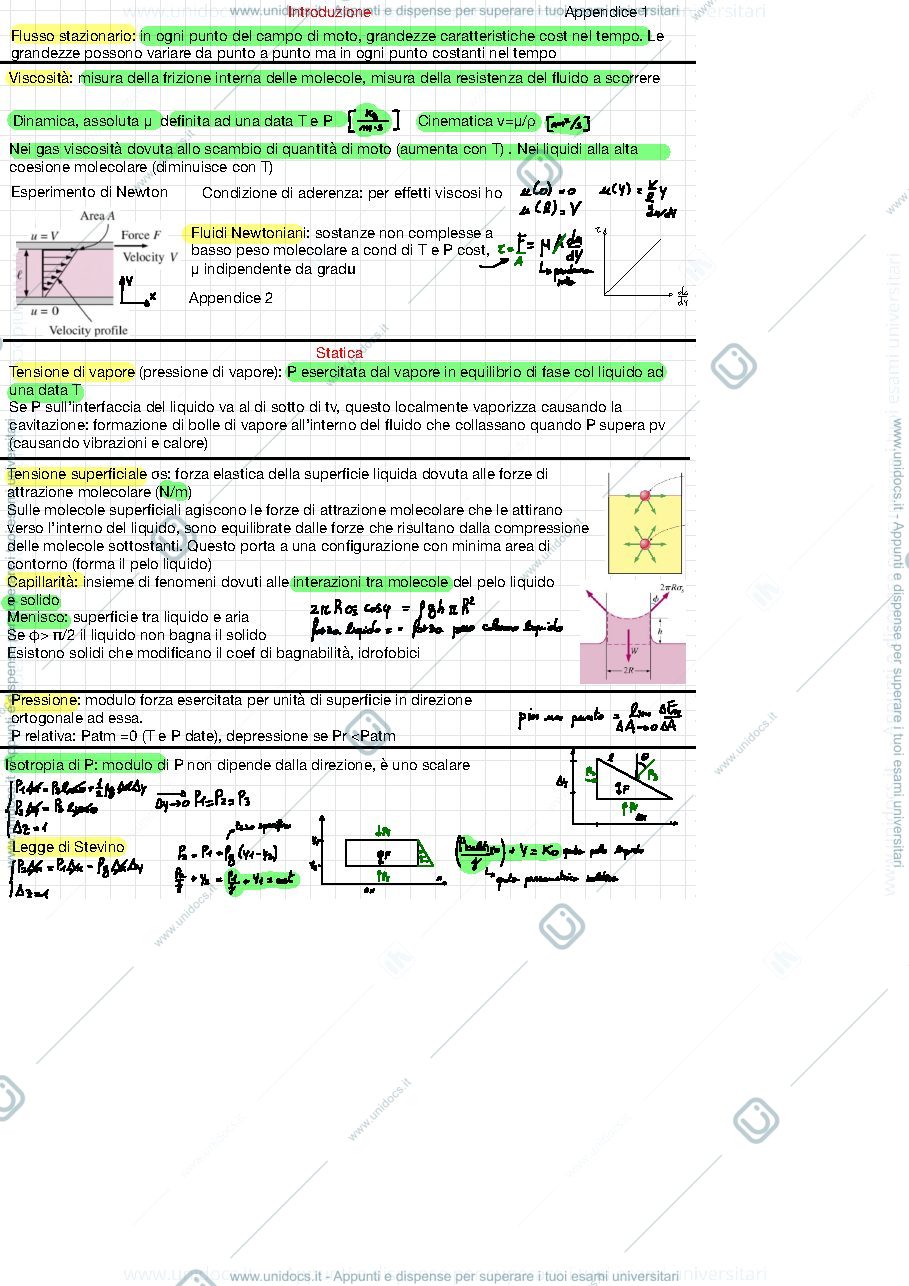 www.unidocs.it - Appunti e dispense per superare i tuoi esami universitari
Introduzione Appendice 1
Flusso stazionario: in ogni punto del campo di moto, grandezze caratteristiche cost nel tempo. Le
grandezze possono variare da punto a punto ma in ogni punto costanti nel tempo
Viscosità: misura della frizione interna delle molecole, misura della resistenza del fluido a scorrere
Dinamica, assoluta μ definita ad una data T e P [kg/m·s] Cinematica v=μ/ρ [m²/s]
Nei gas viscosità dovuta allo scambio di quantità di moto (aumenta con T) . Nei liquidi alla alta
coesione molecolare (diminuisce con T)
Esperimento di Newton Condizione di aderenza: per effetti viscosi ho u(0)=0
u(l)=V
Area A
u = V Force F
Velocity V
ℓ
Y
x
u = 0
Velocity profile
Fluidi Newtoniani: sostanze non complesse a
basso peso molecolare a cond di T e P cost,
μ indipendente da gradu
Appendice 2
Statica
Tensione di vapore (pressione di vapore): P esercitata dal vapore in equilibrio di fase col liquido ad
una data T
Se P sull'interfaccia del liquido va al di sotto di tv, questo localmente vaporizza causando la
cavitazione: formazione di bolle di vapore all'interno del fluido che collassano quando P supera pv
(causando vibrazioni e calore)
Tensione superficiale σs: forza elastica della superficie liquida dovuta alle forze di
attrazione molecolare (N/m)
Sulle molecole superficiali agiscono le forze di attrazione molecolare che le attirano
verso l'interno del liquido, sono equilibrate dalle forze che risultano dalla compressione
delle molecole sottostanti. Questo porta a una configurazione con minima area di
contorno (forma il pelo liquido)
Capillarità: insieme di fenomeni dovuti alle interazioni tra molecole del pelo liquido
e solido
Menisco: superficie tra liquido e aria
Se ϕ> π/2 il liquido non bagna il solido
Esistono solidi che modificano il coef di bagnabilità, idrofobici
2πRσs cosφ = ρghπR²
forza liquido = - forza peso colonna liquido
2πRσs
ϕ
h
W
2R
Pressione: modulo forza esercitata per unità di superficie in direzione
ortogonale ad essa.
P relativa: Patm =0 (T e P date), depressione se Pr <Patm
p in un punto = lim ΔFn/ΔA
ΔA→0
Isotropia di P: modulo di P non dipende dalla direzione, è uno scalare
Δy→0 P1=P2=P3
Δz=1
Legge di Stevino
peso specifico
P2 = P1 + ρg(y1-y2)
P2/γ + y2 = P1/γ + y1 = cost
P2Δx = P1Δx - ρgΔxΔy
Δz=1
www.unidocs.it
www.unidocs.it
www.unidocs.it
www.unidocs.it
www.unidocs.it - Appunti e dispense per superare i tuoi esami universitari
www.unidocs.it - Appunti e dispense per superare i tuoi esami universitari